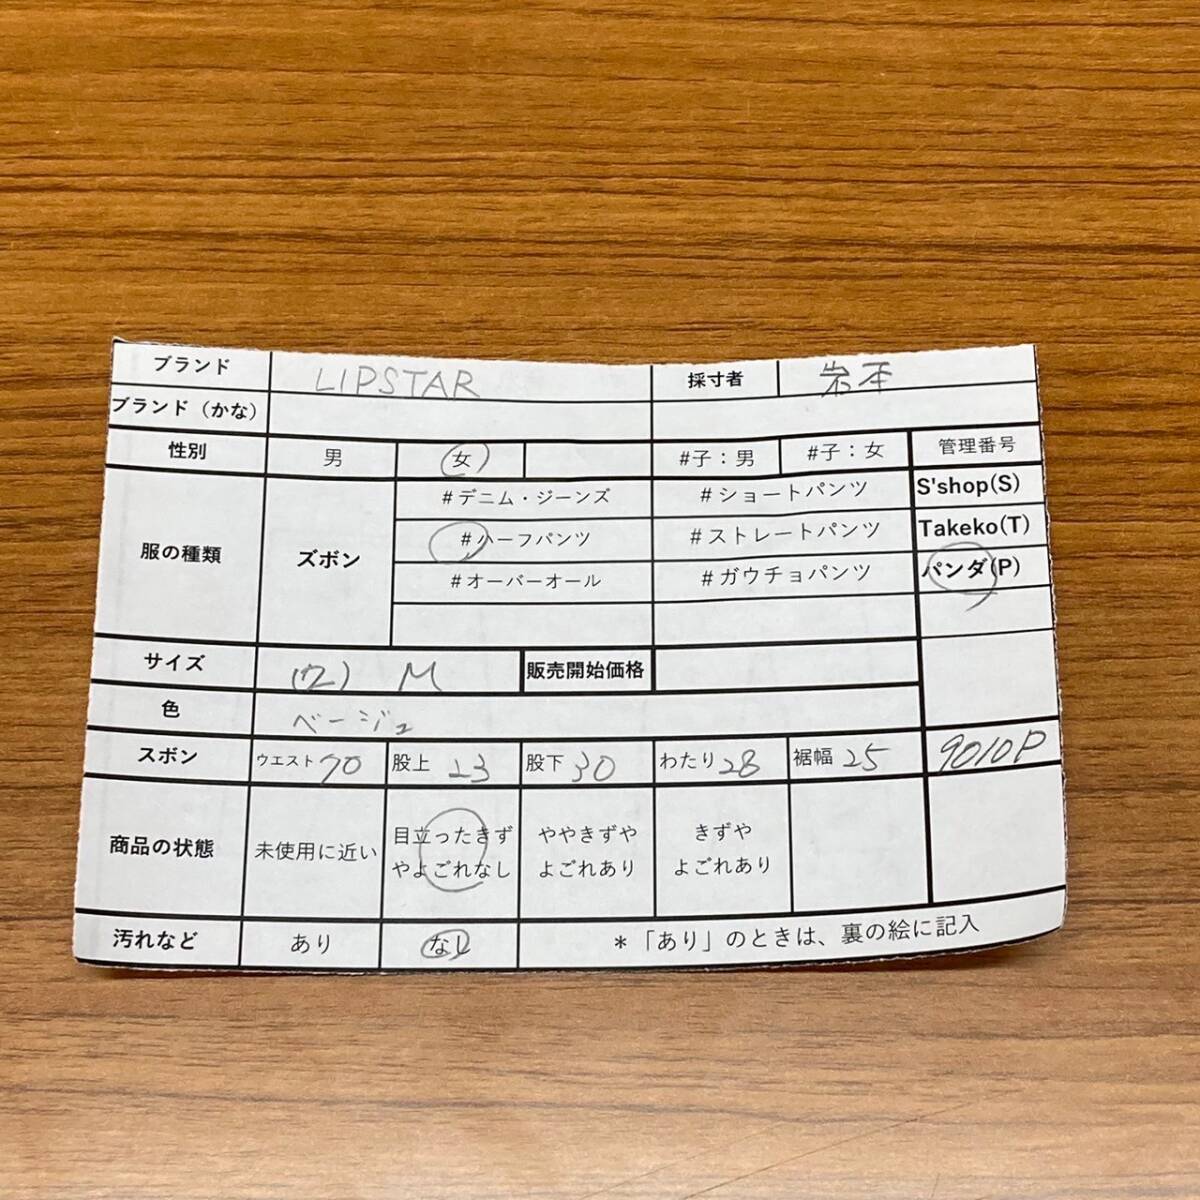 ブランド LIPSTAR 採寸者 岩本
ブランド（かな）
性別 男 女 #子：男 #子：女 管理番号
服の種類 ズボン #デニム・ジーンズ #ショートパンツ S'shop(S)
#ハーフパンツ #ストレートパンツ Takeko(T)
#オーバーオール #ガウチョパンツ パンダ(P)
サイズ (ウエ) M 販売開始価格
色 ベージュ
スボン ウエスト 70 股上 23 股下 30 わたり 28 裾幅 25 9010P
商品の状態 未使用に近い 目立ったきず ややきずや きずや
やよごれなし よごれあり よごれあり
汚れなど あり なし ＊「あり」のときは、裏の絵に記入